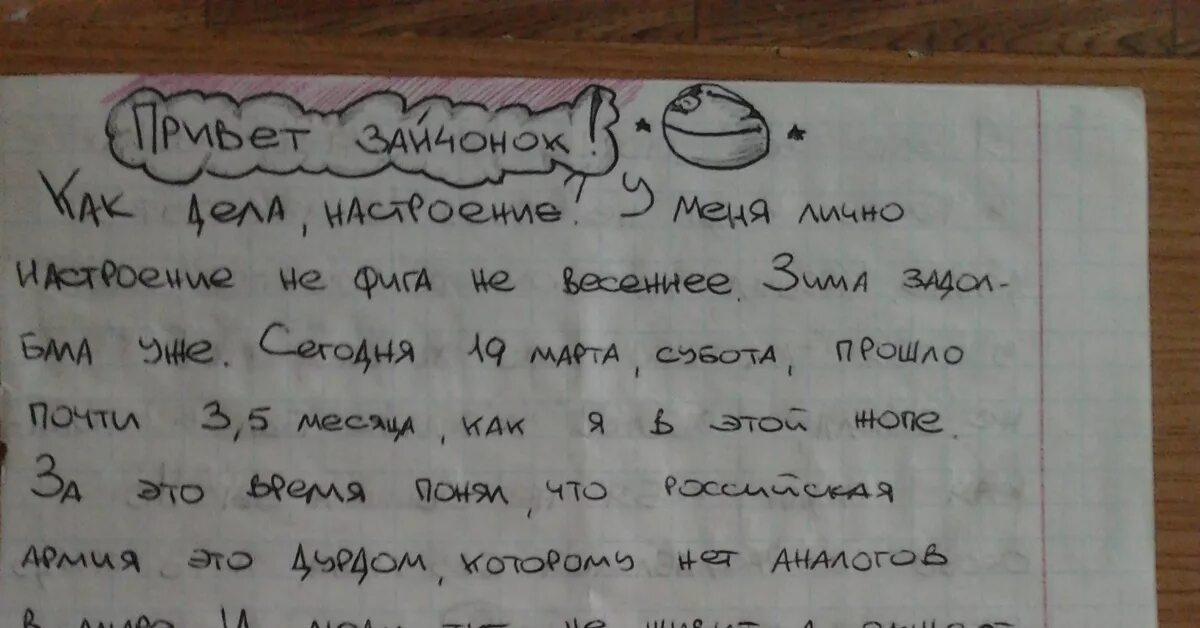 Привет зайчонок!
Как дела, настроение? У меня лично
настроение не фига не весеннее. Зима задол-
бала уже. Сегодня 19 марта, субота, прошло
почти 3,5 месяца, как я в этой жопе.
За это время понял, что российская
армия это дурдом, которому нет аналогов